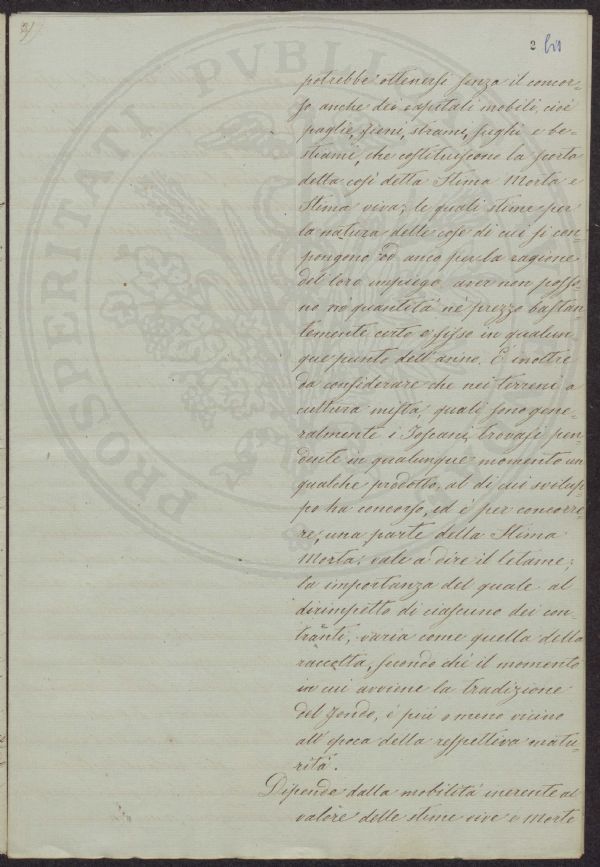 3)
2 bis
potrebbe ottenersi senza il concor-
so anche dei capitali mobili, cioè
paglie, fieni, strami, sughi e be-
stiami, che costituiscono la scorta
detta così detta Stima Morta e
Stima viva; le quali stime per
la natura delle cose di cui si com-
pongono od anco per la ragione
del loro impiego aver non posso-
no nè quantità nè prezzo bastan-
temente certo e fisso in qualun-
que punto dell'anno. È inoltre
da considerare che nei terreni a
cultura mista, quali sono gene-
ralmente i Toscani, trovasi pen-
dente in qualunque momento un
qualche prodotto, al di cui svilup-
po ha concorso, ed è per concorre-
re, una parte della Stima
Morta; vale a dire il letame;
la importanza del quale al
dirimpetto di ciascuno dei con-
traenti, varia come quella della
raccolta, secondo chè il momento
in cui avviene la tradizione
del fondo, è più o meno vicino
all'epoca della respettiva matu-
rità.
Dipende dalla mobilità inerente al
valore delle stime vive e morte
PROSPERITATI PVBLIC